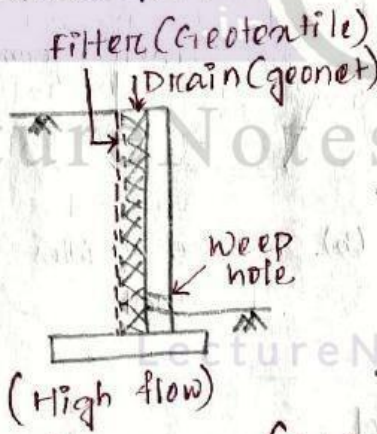 filter (Geotextile)
Drain (geonet)
Weep
hole
(High flow)